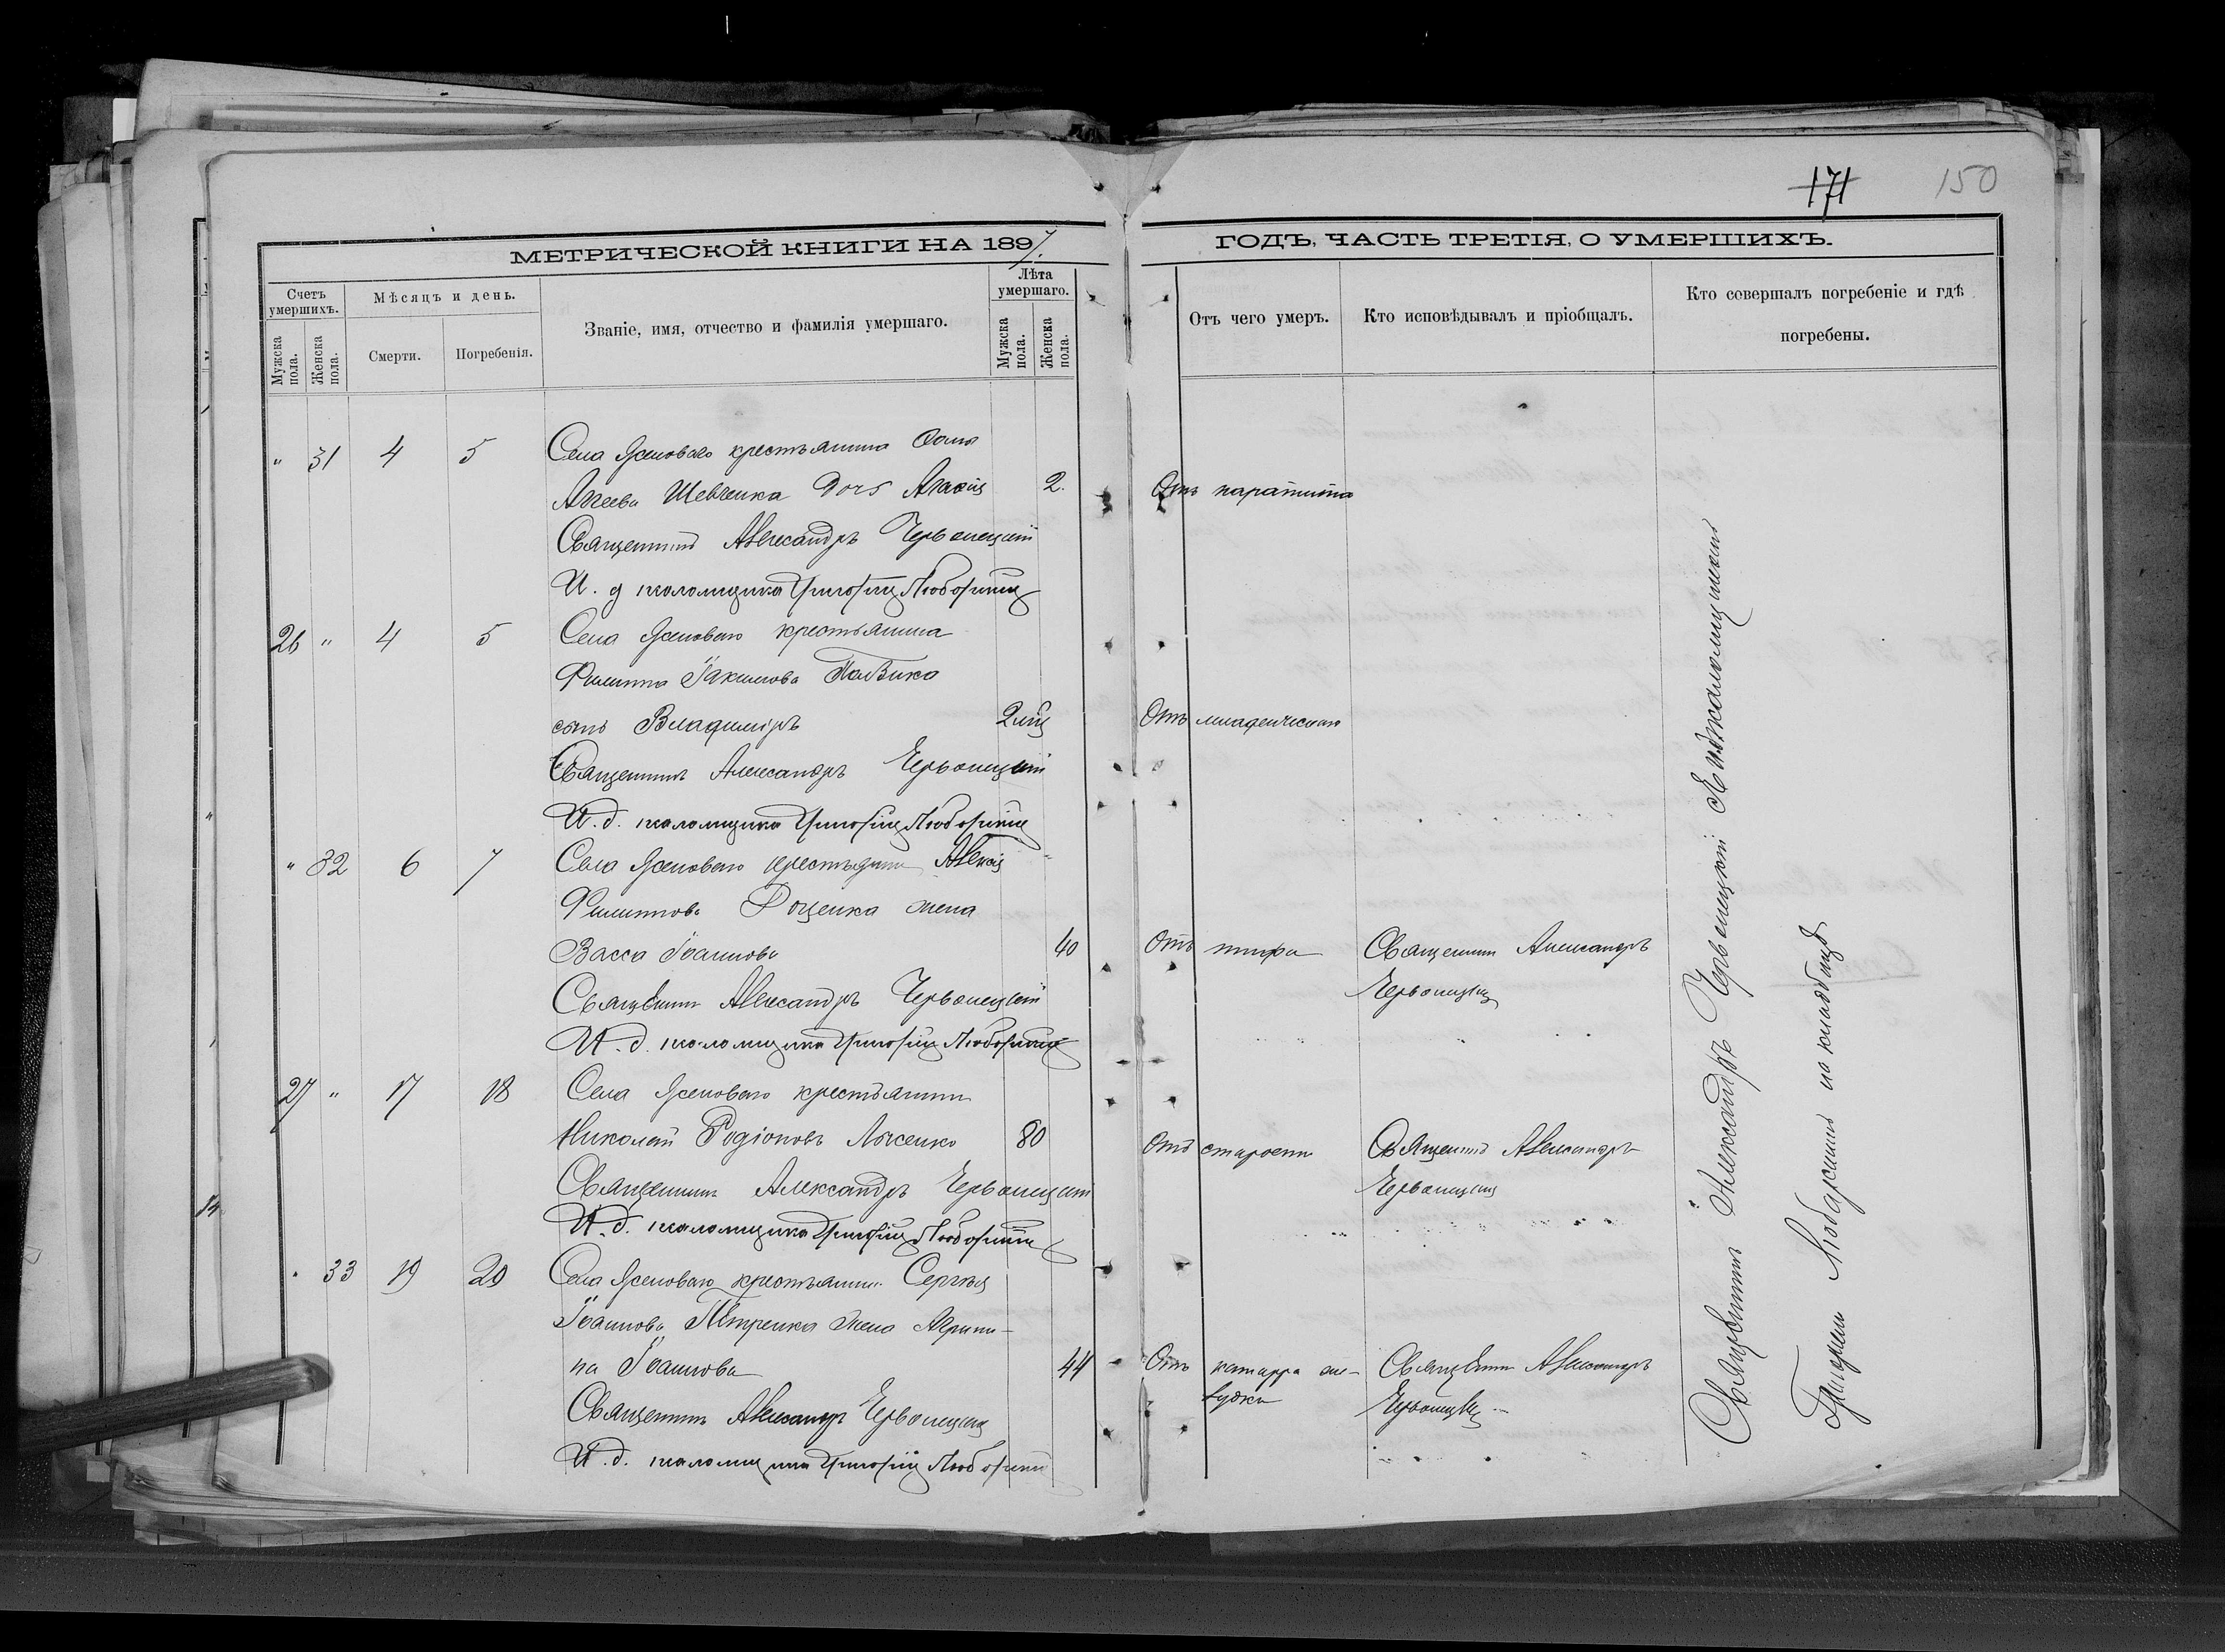 171 150
МЕТРИЧЕСКОЙ КНИГИ НА 1897 ГОДЪ, ЧАСТЬ ТРЕТІЯ, О УМЕРШИХЪ.
Счетъ умершихъ.
Мужска пола.
Женска пола.
Мѣсяцъ и день.
Смерти.
Погребенія.
Званіе, имя, отчество и фамилія умершаго.
Лѣта умершаго.
Мужска пола.
Женска пола.
Отъ чего умеръ.
Кто исповѣдывалъ и пріобщалъ.
Кто совершалъ погребеніе и гдѣ
погребены.
" 31 4 5 Села Ясеноваго крестьянина Ѳомы
Шевченка 2. Отъ
Священникъ Александръ Червонецкій
И. д псаломщика Григорій Любарскій
26 " 4 5 Села Ясеноваго крестьянина
Филиппа Іакимова
сынъ Владиміръ 2 мѣс Отъ младенческой
Священникъ Александръ Червонецкій
И. д. псаломщика Григорій Любарскій
" 32 6 7 Села Ясеноваго крестьянина Алексія
Филиппова Доценка жена
Васса Іоаннова 40 Отъ тифа Священникъ Александръ
Червонецкій
Священникъ Александръ Червонецкій
И. д. псаломщика Григорій Любарскій
27 " 17 18 Села Ясеноваго крестьянинъ
Николай Родіоновъ 80 Отъ старости Священникъ Александръ
Червонецкій
Священникъ Александръ Червонецкій
И. д. псаломщика Григорій Любарскій
" 33 19 20 Села Ясеноваго крестьянина Сергѣя
Іоаннова Петренка жена Агрипи-
на Іоаннова 44 Отъ катарра же-
лудка Священникъ Александръ
Червонецкій
Священникъ Александръ Червонецкій
И. д. псаломщика Григорій Любарскій
Священникъ Александръ Червонецкій псаломщикомъ
Григоріемъ Любарскимъ на кладбищѣ